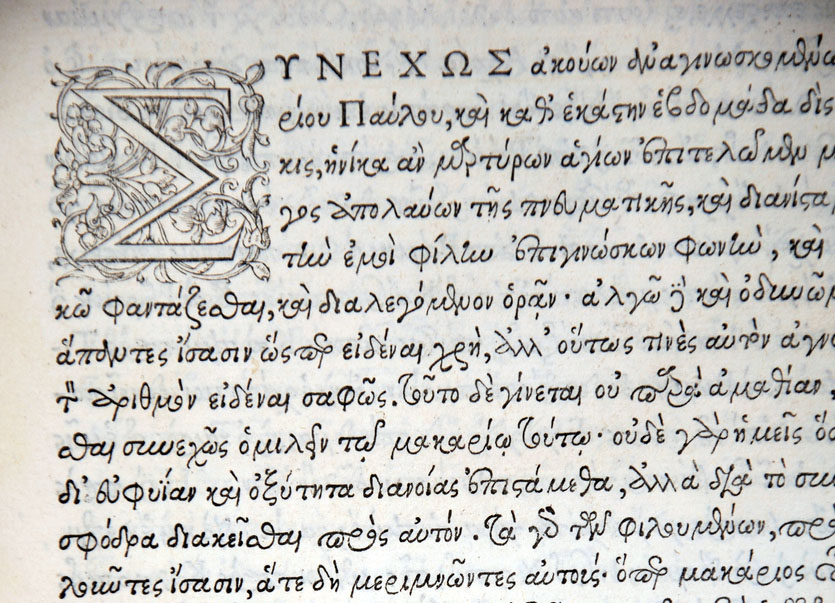 ΣΥΝΕΧΩΣ ἀκούων ἀναγινωσκομένω
ρίου Παύλου, καὶ καθ' ἑκάστην ἑβδομάδα δὶς
κις, ἡνίκα ἂν μαρτύρων ἁγίων ἐπιτελῶμεν μ
γος ἀπολαύων τῆς πνευματικῆς, καὶ διανίστα
τὴν ἐμοὶ φίλην ἐπιγινώσκων φωνὴν, καὶ
κῶ φαντάζεσθαι, καὶ διαλεγόμενον ὁρᾷν. ἀλγῶ δὲ καὶ ὀδυνῶμ
ἅπαντες ἴσασιν ὥσπερ εἰδέναι χρὴ, ἀλλ' οὕτως τινὲς αὐτὸν ἀγνο
τὸν ἀριθμὸν εἰδέναι σαφῶς. τοῦτο δὲ γίνεται οὐ παρὰ ἀμαθίαν,
σθαι συνεχῶς ὁμιλεῖν τῷ μακαρίῳ τούτῳ. οὐδὲ γὰρ ἡμεῖς ὅσ
δι' εὐφυΐαν καὶ ὀξύτητα διανοίας ἐπιστάμεθα, ἀλλὰ διὰ τὸ συν
σφόδρα διακεῖσθαι πρὸς αὐτόν. τὰ γὰρ τῶν φιλουμένων, πρὸ
λοῦντες ἴσασιν, ἅτε δὴ μεριμνῶντες αὐτούς. ὅπερ μακάριος